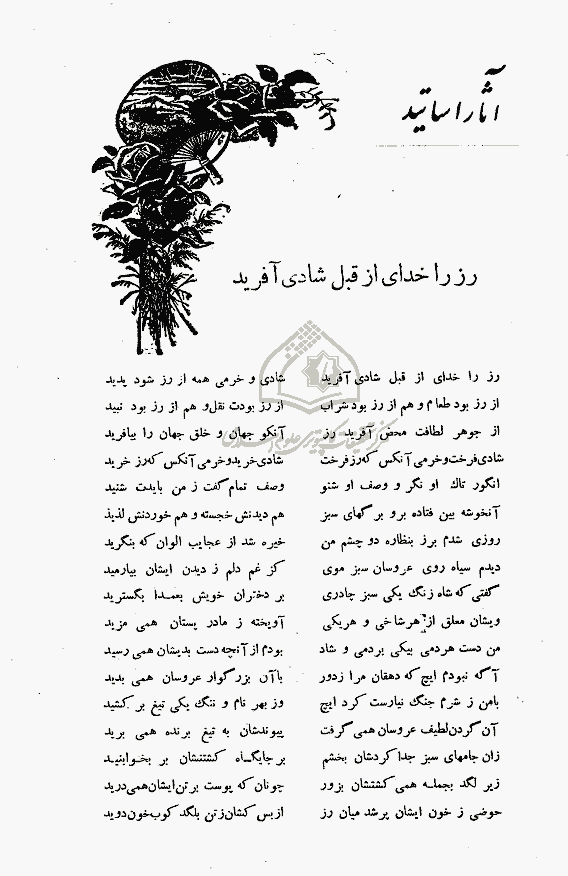 آثار اساتید
رز را خدای از قبل شادی آفرید
رز را خدای از قبل شادی آفرید شادی و خرمی همه از رز شود پدید
از رز بود طعام و هم از رز بود شراب از رز بودت نقل و هم از رز بود نبید
از جوهر لطافت محض آفرید رز آنکو جهان و خلق جهان را بیافرید
شادی فرخت و خرمی آنکس که رز فرخت شادی خرید و خرمی آنکس که رز خرید
انگور تاك او نگر و وصف او شنو وصف تمام گفت ز من بایدت شنید
آنخوشه بین فتاده برو برگهای سبز هم دیدنش خجسته و هم خوردنش لذیذ
روزی شدم برز بنظاره دو چشم من خیره شد از عجایب الوان که بنگرید
دیدم سیاه روی عروسان سبز موی کز غم دلم ز دیدن ایشان بیارمید
گفتی که شاه زنگ یکی سبز چادری بر دختران خویش بعمدا بگسترید
ویشان معلق از هر شاخی و هریکی آویخته ز مادر پستان همی مزید
من دست هر دمی بیکی بردمی و شاد بودم از آنچه دست بدیشان همی رسید
آگه نبودم ایچ که دهقان مرا ز دور با آن بزرگوار عروسان همی بدید
بامن ز شرم جنگ نیارست کرد ایچ وز بهر نام و ننگ یکی تیغ بر کشید
آن گردن لطیف عروسان همی گرفت پیوندشان به تیغ برنده همی برید
زان جامهای سبز جدا کردشان بخشم بر جایگاه کشتنشان بر بخوابنید
زیر لگد بجمله همی کشتشان بزور چونان که پوست بر تن ایشان همی درید
حوضی ز خون ایشان پر شد میان رز از بس کشان ز تن بلگد کوب خون دوید